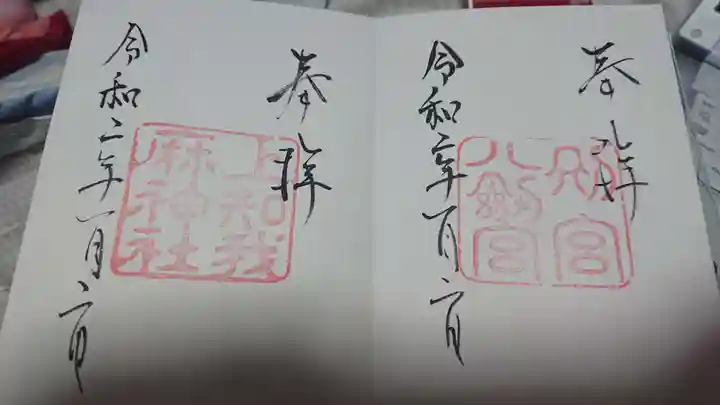 奉拝
八剱宮
令和二年一月六日
奉拝
上知我
麻神社
令和二年一月六日